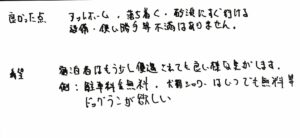 良かった点 アットホーム、落ち着く、砂浜にすぐ行ける
設備・使い勝手等不満はありません。
希望 宿泊者はもう少し優遇されても良い様な気がします。
例:駐車料金無料、犬用シャワーはいつでも無料等
ドッグランが欲しい